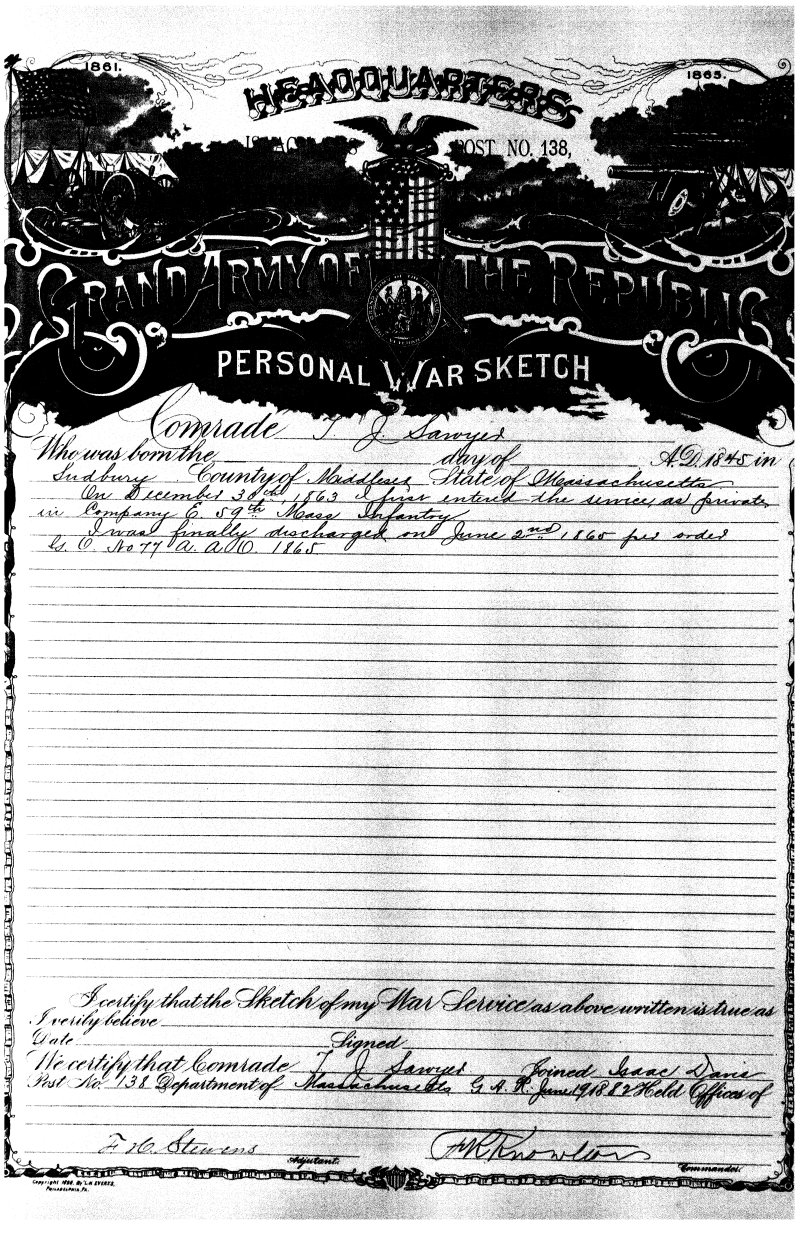 1861.
1865.
HEADQUARTERS
ISAAC DAVIS POST NO. 138,
GRAND ARMY OF THE REPUBLIC
PERSONAL WAR SKETCH
Comrade T J. Sawyer
Who was born the day of A.D. 1845 in
Sudbury County of Middlesex State of Massachusetts
On December 30th 1863 I first entered the service as private
in Company E. 59th Mass Infantry
I was finally discharged on June 2nd 1865 per order
No 77 A. A. O. 1865
I certify that the Sketch of my War Service as above written is true as
I verily believe
Date Signed
We certify that Comrade T J Sawyer Joined Isaac Davis
Post No. 138 Department of Massachusetts G. A. R. June 19 1882 Held Offices of
F H. Stevens
Adjutant.
F K Knowlton
Commander.
Copyright By L.H. EVERTS,
PHILADELPHIA, PA.